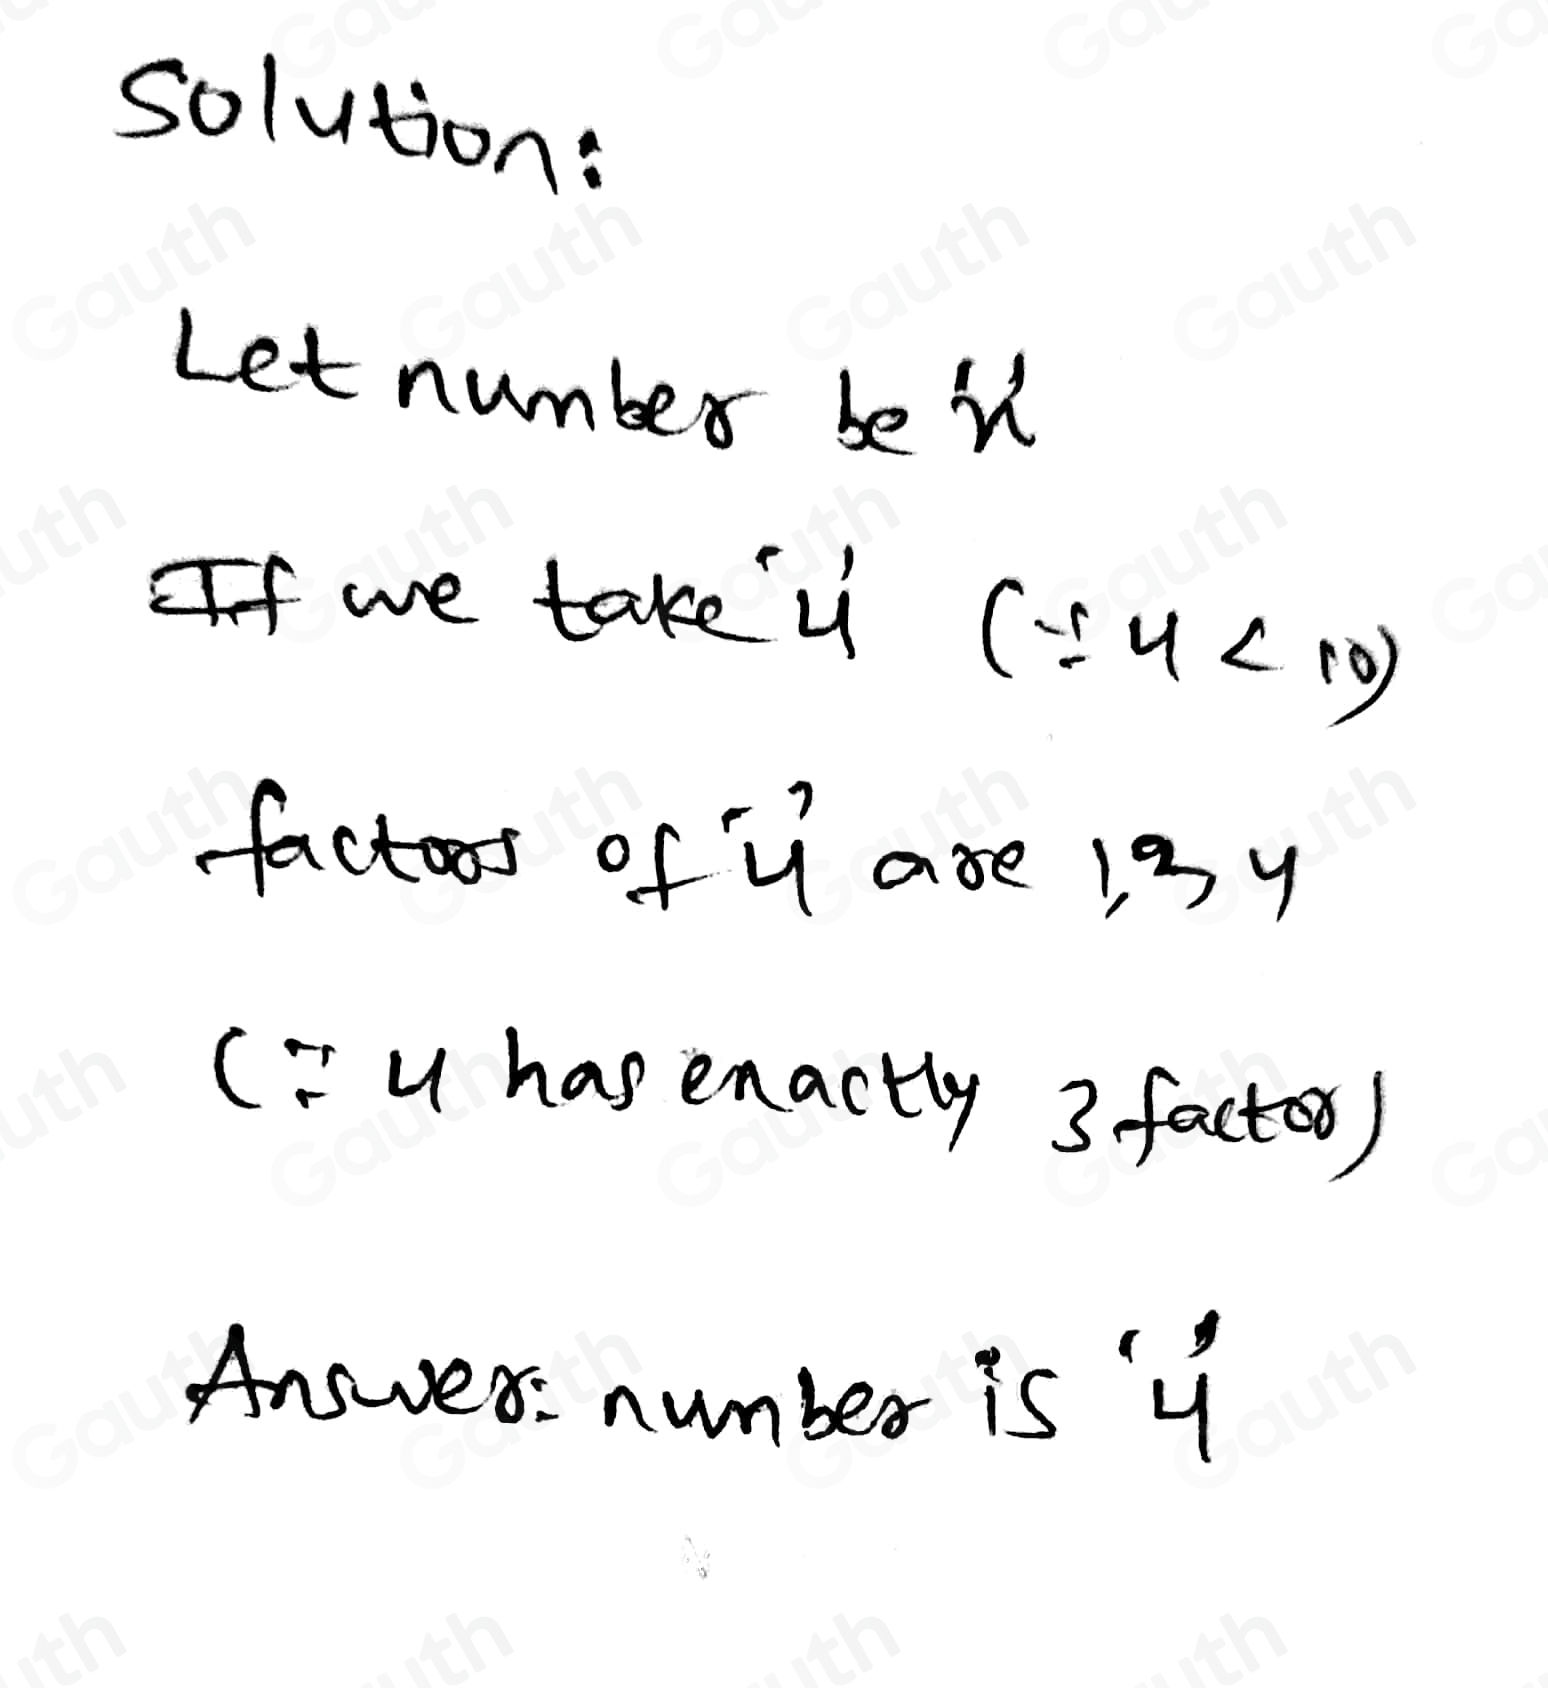 Solution:
Let number be 'x'
If we take '4' (∵ 4 < 10)
factors of '4' are 1,2,4
(∵ 4 has exactly 3 factor)
Answer: number is '4'